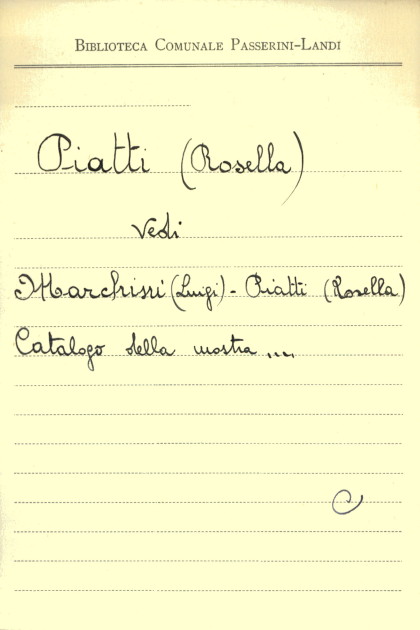 BIBLIOTECA COMUNALE PASSERINI-LANDI
Piatti (Rosella)
Vedi
(Luigi) - Piatti (Rosella)
Catalogo della mostra ....
C